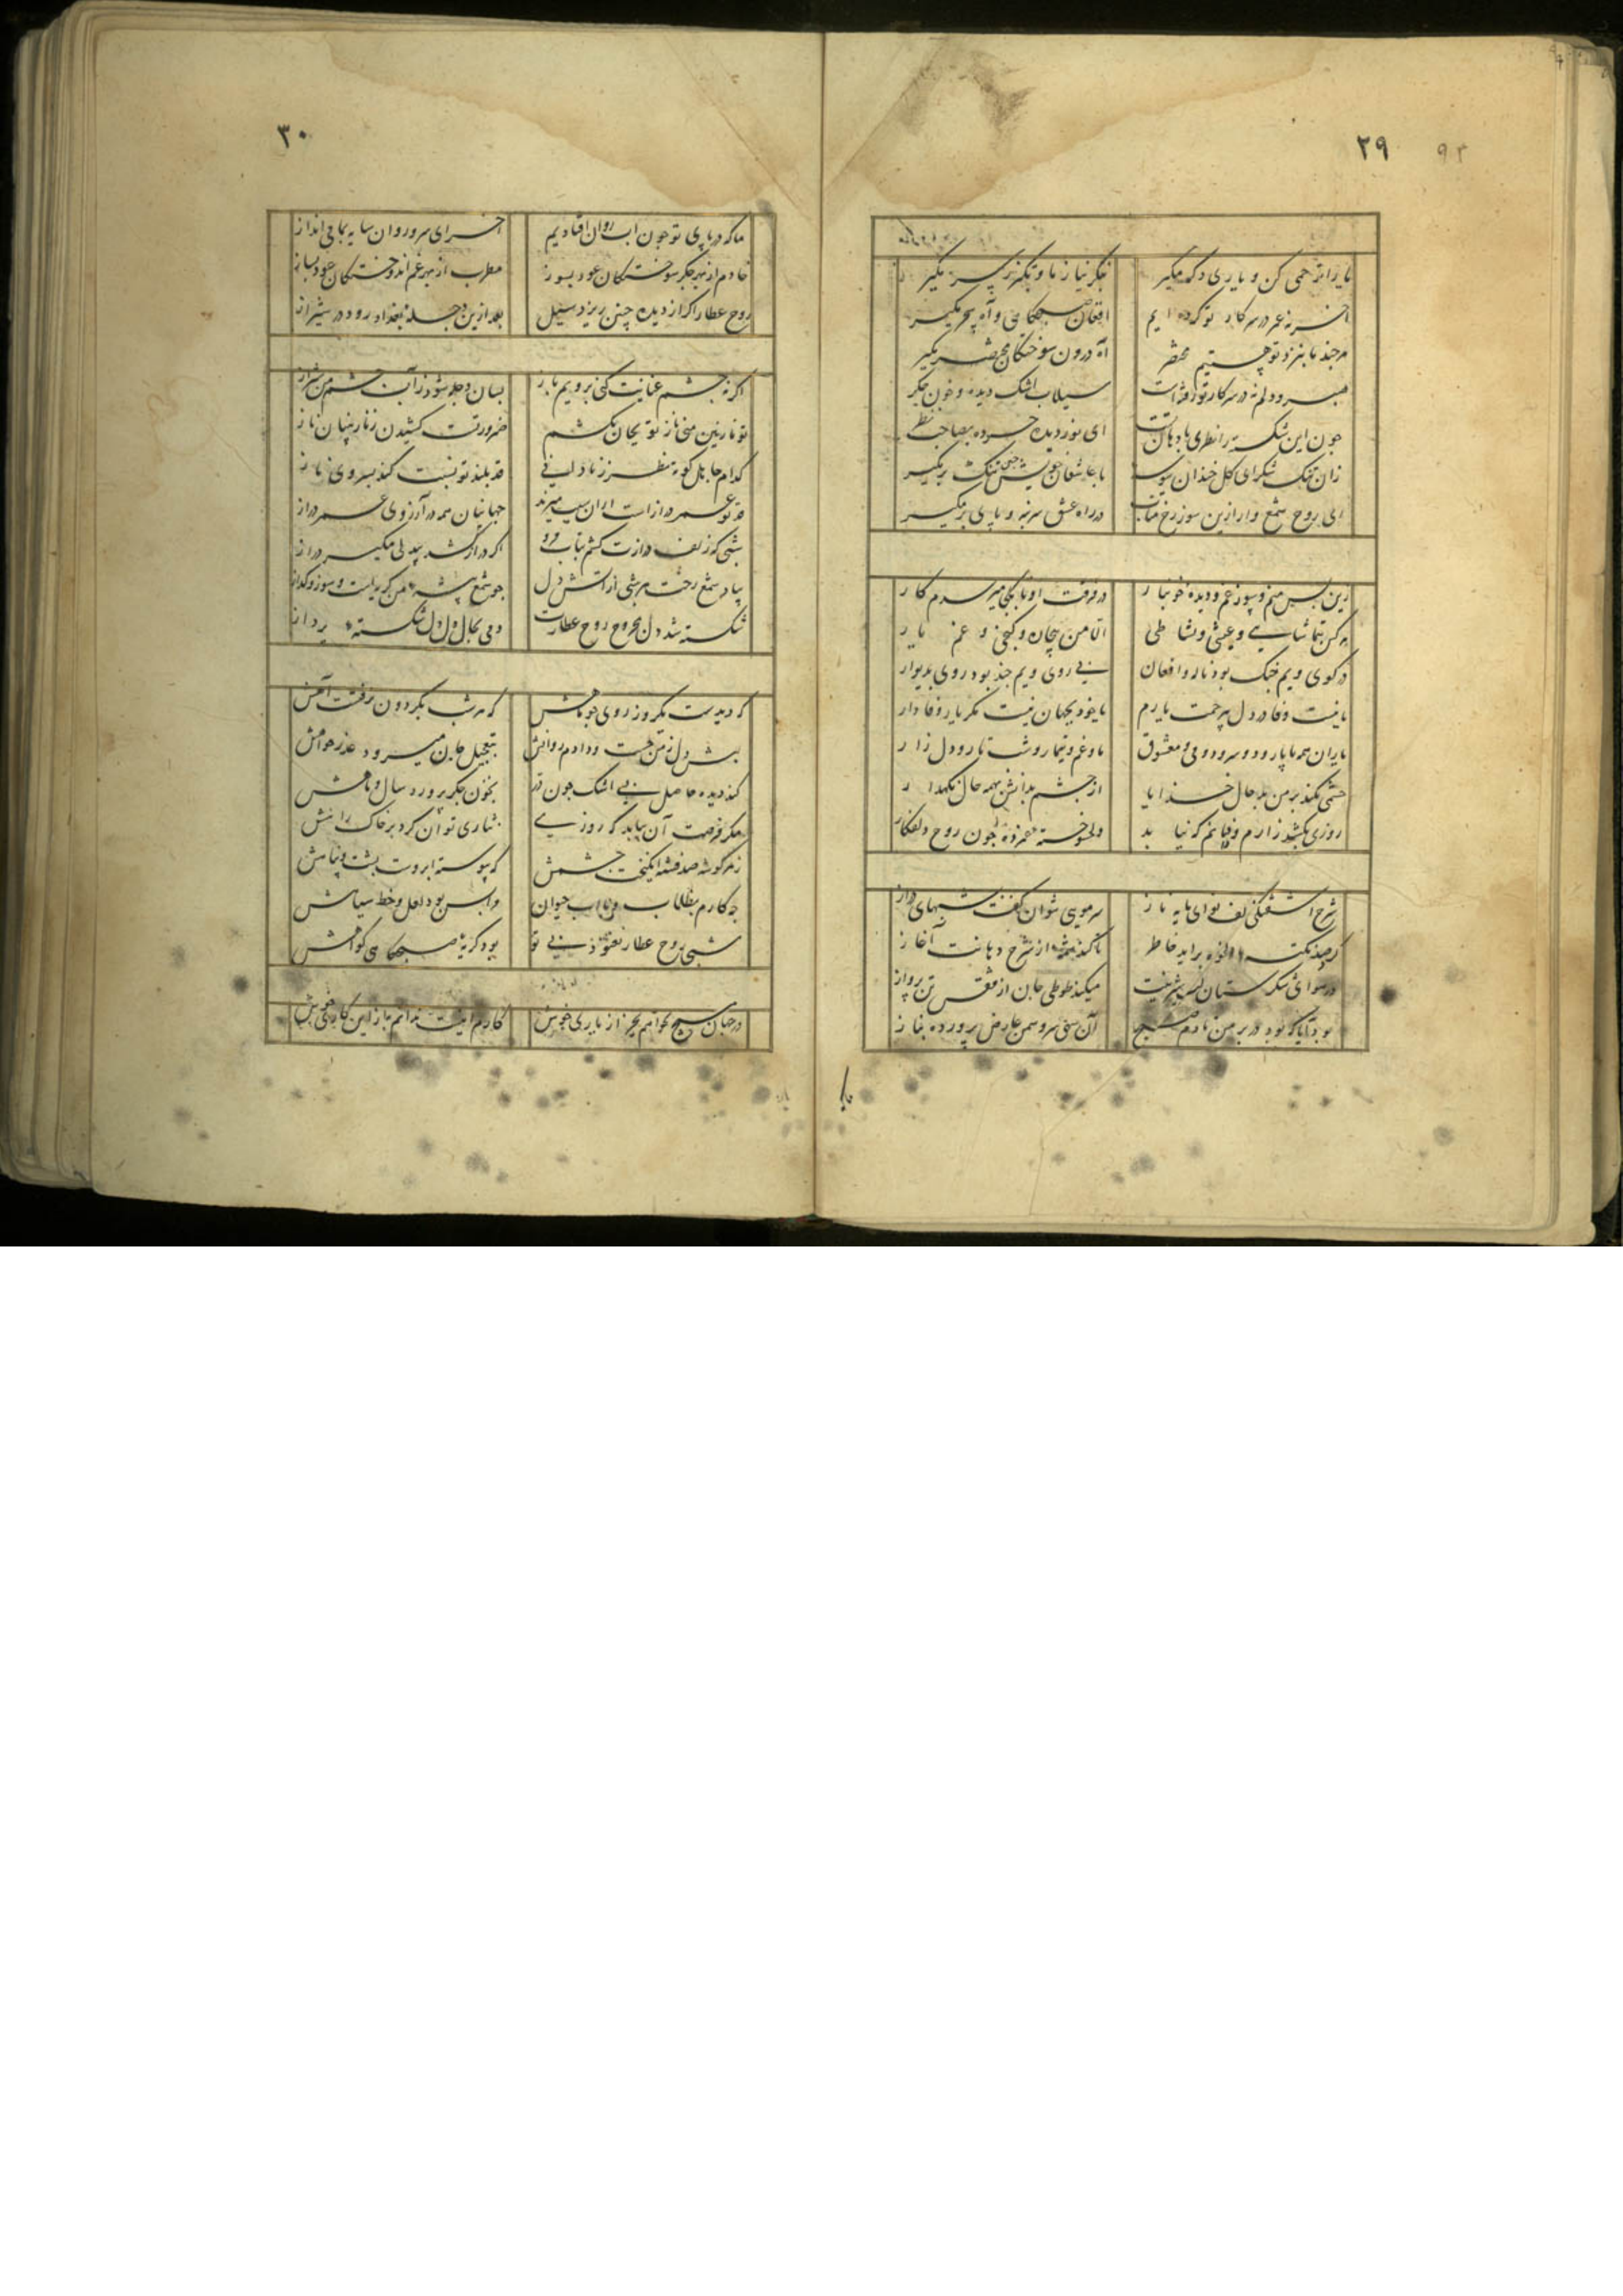 ۲۹ ۹۳
یا را ترحمی کن و یاری دگر مگیر
فکر نیاز ما و تکبر ز سر مگیر
آخر نه عمر در سر کار تو کرده ایم
افغان صبحگاهی و آه سحر مگیر
هر چند ما بنزد تو هستیم محقر
آه درون سوختگان مختصر مگیر
صبر و دلم نه در سر کار تو رفته است
سیلاب اشک دیده و خون جگر
چون این شکسته را نظری با دهان تست
ای نور دیده خرده بصاحب نظر
زان تنک شکر ای گل خندان ببوسه
با عاشقان خویش چنین تنک بر مگیر
ای روح شمع وار ازین سوز رخ متاب
در راه عشق سر نه و پای بر مگیر
زین پس منم و سوز غم و دیده خونبار
در فرقت او تا بکجا میرسدم کار
هر کس بتماشایی و عیشی و نشاطی
الا من بیجان و کنجی و غم یار
در کوی ویم چنک بود ناله و افغان
بی روی ویم چند بود روی بدیوار
یا نیست وفا در دل بیرحمت یارم
یا خود بجهان نیست مگر یار وفادار
یاران همه با یار و سرود و می و معشوق
ما و غم و تیمار و شب تار و دل زار
رحمی نکند بر من بد حال خدایا
از چشم بدانش بهمه حال نگهدار
روزی بکشد زارم و دانم که نیابد
دلسوخته غمزده چون روح دلفگار
شرح آشفتگی زلف تو ای مایه ناز
سر مویی نتوان گفت بشبهای دراز
گر چه صد نکته باندازه بر آید خاطر
تا کند شمه از شرح دهانت آغاز
در هوای شکرستان لب شیرینت
میکند طوطی جان از قفس تن پرواز
بود آیا که بود در بر من تا دم صبح
آن سهی سرو سمن عارض پرورده بناز
ما که
۳۰
ما که در پای تو چون آب روان افتادیم
آخر ای سرو روان سایه بما می انداز
خادم از بهر جگر سوختگان عود بسوز
مطرب از بهر غم اندوختگان عود بساز
روح عطار اگر از دیده چنین ریزد سیل
بعد ازین دجله بغداد رود در شیراز
اگر نه چشم عنایت کنی برویم باز
بسان دجله شود ز آب چشم من شیراز
تو نازنین منی ناز تو بجان بکشم
ضرورتست کشیدن ز نازنینان ناز
کدام جاهل کوته نظر ز نادانی
قد بلند تو نسبت کند بسرو ی ناز
قد تو عمر دراز است از آن سبب میرند
جهانیان همه در آرزوی عمر دراز
شبی که زلف درازت کشم بتاب مرو
اگر دراز کشد بیدلی مگیر دراز
بیاد شمع رخت هر شبی از آتش دل
چو شمع پیشه من گریه است و سوز و گداز
شکسته شد دل مجروح روح عطارت
دمی بحال دل دل شکسته پرداز
که دیدست یکروز روی چو ماهش
که هر شب بگردون نرفتست آهش
بشش دل ز من جست و دادم روانش
بتعجیل جان میرود عذر خواهش
کند دیده حاصل بی اشک چون در
بخون جگر پرورد سال و ماهش
مگر فرصت آن بیابد که روزی
نثاری توان کرد بر خاک راهش
ز هر گوشه صد فتنه انگیخت چشمش
که پیوسته ابروست پشت و پناهش
چه کارم بظلمات و با آب حیوان
مرا بس بود لعل و خط سیاهش
شبی روح عطار نغنود بی تو
بود گریه صبحگاهی گواهش
در جهان هیچ نخوانم بجز از یاری خویش
کارم اینست ندانم باز این کار خویش